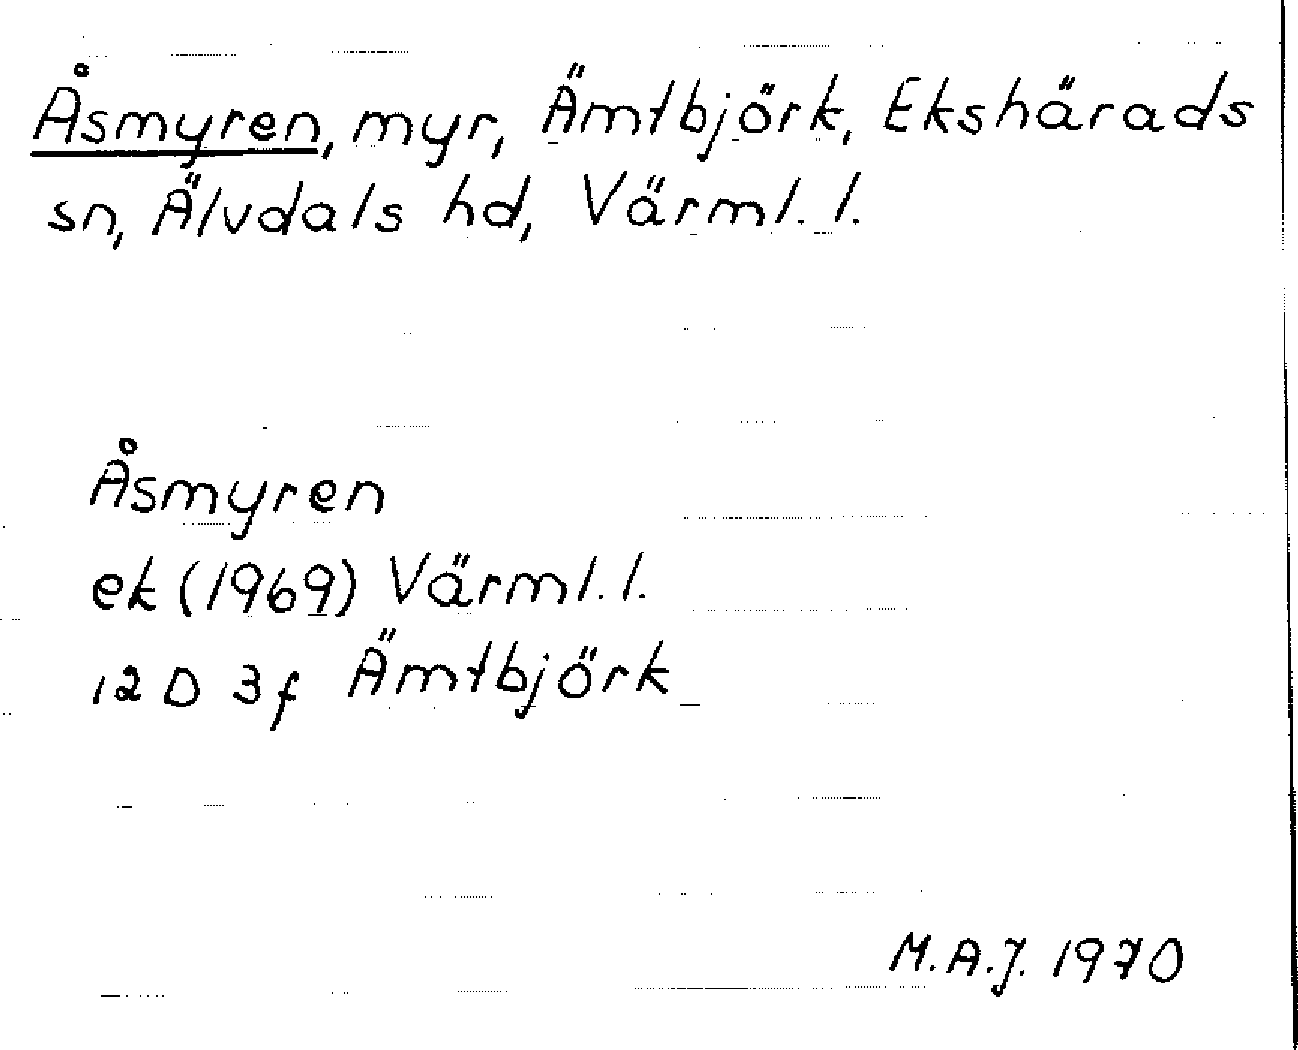 Åsmyren, myr, Ämtbjörk, Ekshärads
sn, Älvdals hd, Värml. l.
Åsmyren
ek (1969) Värml. l.
12 D 3f Ämtbjörk
M.A.J. 1970